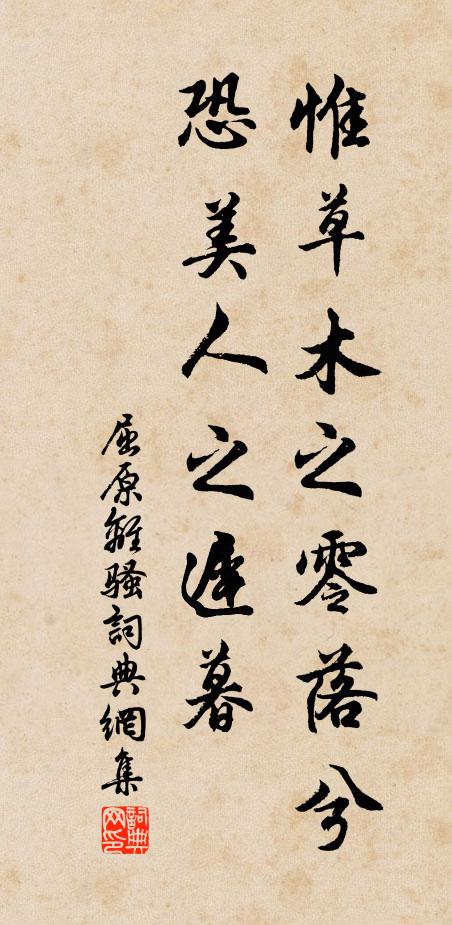 惟草木之零落兮
恐美人之遅暮
屈原離騷詞典網集
詞典网印